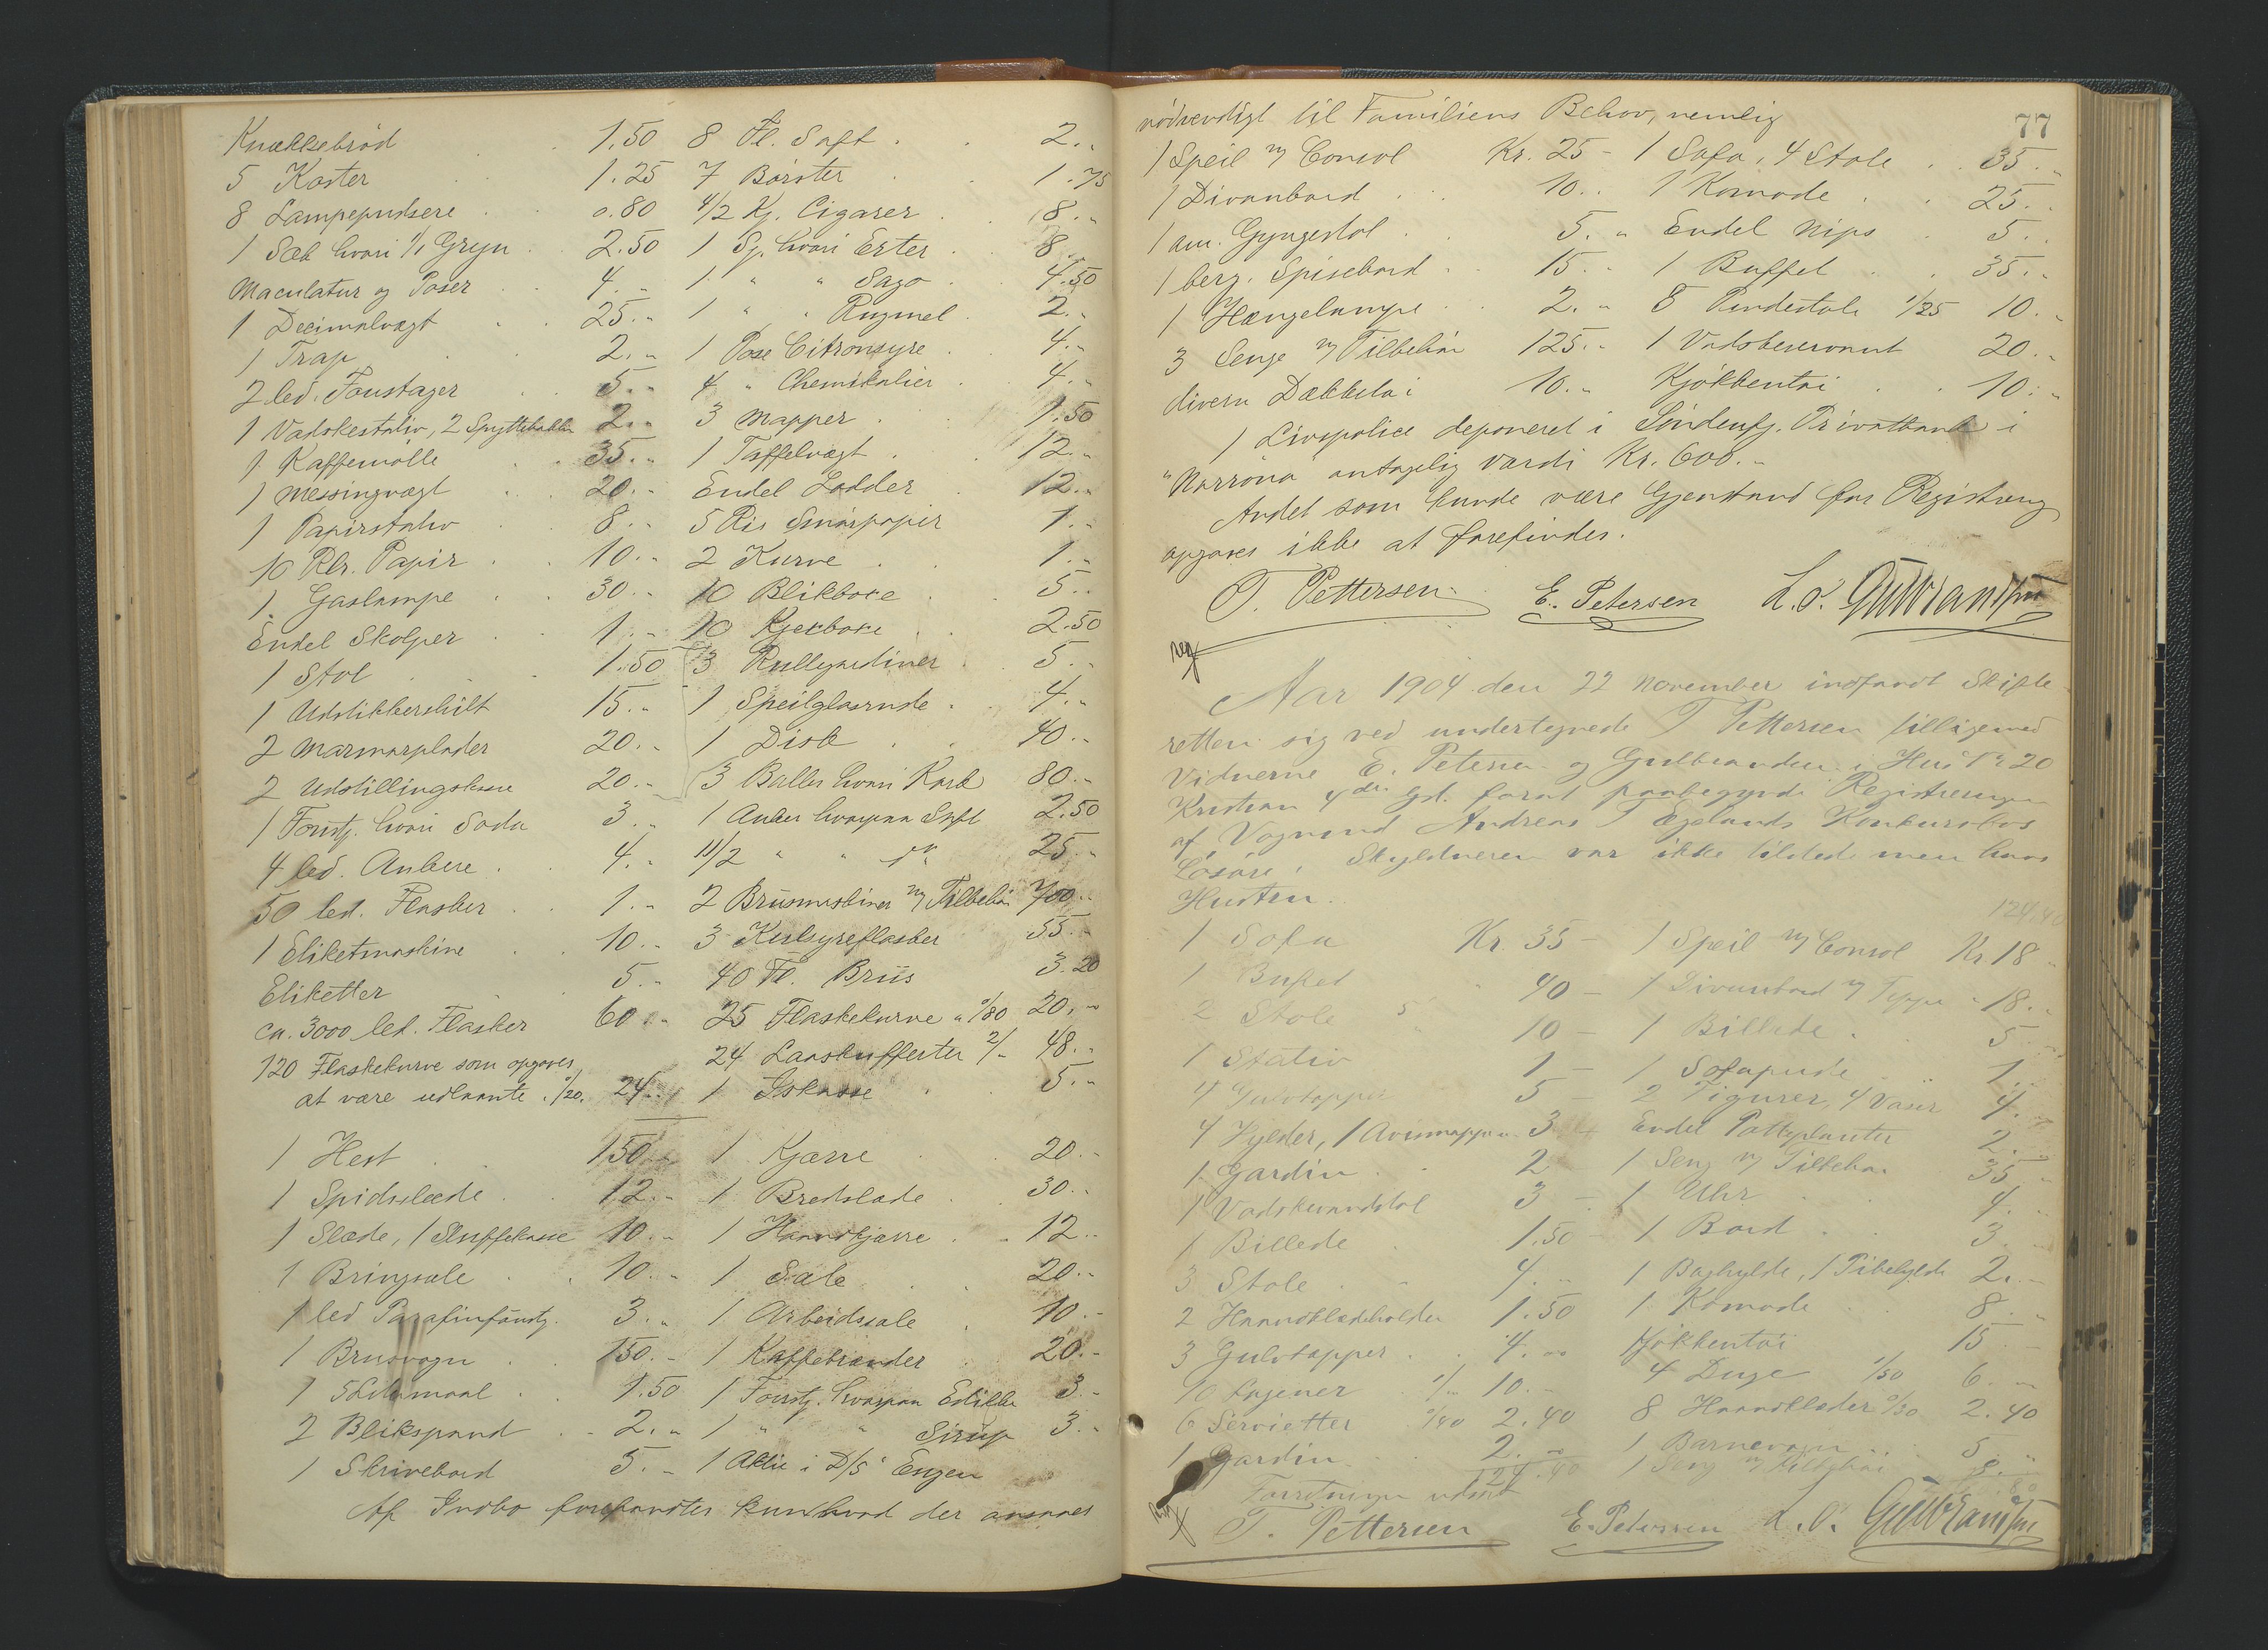 Knækkebrød . . 1.50 8 Fl. Saft . . 2.„
5 Koster . . 1.25 7 Börster . . 1.75
8 Lampepudsere . . 0.80 4/2 Kj. Cigarer . 18.„
1 Sæk hvori 1/1 Gryn . 2.50 1 Sj. hvori Erter . 8.„
Maculatur og Poser . . 4.„ 1 „ „ Sago . 4.50
1 Decimalvægt . . 25.„ 1 „ „ Rugmel . 2.„
1 Trap . . 2.„ 1 Pose Citronsyre . 4.„
2 led. Foustager . . 5.„ 4 „ Chemikalier . 4.„
1 Vadskestativ, 2 Spyttebakker 2.„ 3 Mapper . . 1.50
1 Kaffemølle . . 35.„ 1 Taffelvægt . . 12.„
1 Messingvægt . . 20.„ Endel Lodder . 12.„
1 Papirstativ . 8.„ 5 Ris Smörpapir 1.„
10 Rlr. Papir . . 10.„ 2 Kurve . . 1.„
1 Gaslampe . . 30.„ 10 Blikboxe . . 5.„
Endel Skolper . . 1.„ 10 Kjexboxe . . 2.50
1 Stol . . 1.50 3 Rullgardiner . 5.„
1 Udstikkerskilt 15.„ 1 Speilglasrude . 4.„
2 Marmorplader 20.„ 1 Disk . . 40.„
2 Udstillingskasse 20.„ 3 Baller hvori Kork 80.„
1 Foustj. hvori Soda 3.„ 1 Anker hvorpaa Saft 2.50
4 led. Ankere . . 4.„ 11/2 „ „ „ 25.„
50 led. Flasker . . 1.„ 2 Brusmaskiner m/ Tilbehör 700.„
1 Etiketmaskine . . 10.„ 3 Kulsyreflasker 55.„
Etiketter . 5.„ 40 Fl. Brus 3.20
ca. 3000 led. Flasker 60.„ 25 Flaskekurve „/80 20.„
120 Flaskekurve som opgaves 24 Laaskufferter 2/- 48.„
at være udlaante „/20. 24.„ 1 Iskasse . 5.„
1 Hest . . 150.„ 1 Kjærre . . 20.„
1 Spidsslæde . . 12.„ 1 Bredslæde . 30.„
1 Slæde, 1 Sluffekasse 10.„ 1 Haandkjærre . . 12.„
1 Bringsæle . . 10.„ 1 Sæle . . 20.„
1 led Parafinfoustj. 3.„ 1 Arbeidssæle . 10.„
1 Brusvogn . . 150.„ 1 Kaffebrænder . 20.„
1 5 Litermaal . 1.50 1 Foustj. hvorpaa Edikke 3.„
2 Blikspand . . 2.„ 1 „ „ Sirup 3.„
1 Skrivebord 5.„ 1 Aktie i D/S „Engen
Af Indbo forefandtes kun hvad der ansaaes
77
nödvendigt til Familiens Behov, nemlig
1 Speil m/ Consol Kr. 25 - 1 Sofa, 4 Stole . . 35.„
1 Divanbord . . 10.. 1 Komode . . 25.„
1 am. Gyngestol . . 5.„ Endel Nips . 5.„
1 berg. Spisebord . . 15.„ 1 Buffet . . 35.„
1 Hængelampe . . 2.„ 8 Pindestole 1/25 10.„
3 Senge m/ Tilbehör 125.„ 1 Vadskeservant 20.„
divers Dækketöi 10.„ Kjökkentöi . . 10.„
1 Livspolice deponeret i Söndenfj. Privatbank i
"Norröna" antagelig Værdi Kr. 600.„
Andet som kunde være Gjenstand for Registrering
opgaves ikke at forefindes.
T. Pettersen. E. Petersen L. O. Gulbrandsen
reg
Aar 1904 den 22 November indfandt Skifte
retten sig ved undertegnede T Pettersen tilligemed
Vidnerne E. Petersen og Gulbrandsen i Hus No 20
Kristian 4des Gd. forat paabegynde Registreringen
af Vognmand Andreas T Egelands Konkursbos
Lösöre. Skyldneren var ikke tilstede men hans
Hustru. 124.40
1 Sofa Kr. 35 - 1 Speil m/ Consol Kr 18 „
1 Bufet 40 - 1 Divanbord m/ Teppe „ 18.„
2 Stole 5 10 - 1 Billede . 5 „
1 Stativ 1 - 1 Sofapude . 1.
4 Gulvtepper 5 - 2 Figurer, 4 Vaser 4.„
4 Hylder, 1 Avismappe 3 Endel Potteplanter 2.„
1 Gardin . . 2 1 Seng m/ Tilbehör 35 „
1 Vadskevandstol 3 - 1 Uhr . 4.„
1 Billede 1.50 1 Bord . . 3.„
3 Stole . . 4.„ 1 Boghylde, 1 Pibehylde 2.„
2 Haandklædeholder 1.50 1 Komode . 8.„
3 Gulvtepper . . 4.„ Kjökkentöi 15 „
10 Lagener . 1/- 10.„ 4 Duge 1/50 6.„
6 Servietter „/40 2.40 8 Haandklæder „/30 2.40
1 Gardin . . 2.„ 1 Barnevogn . . 5.„
124.40 1 Seng m/ Tilbehör 8.„
Forretningen udsat
reg T. Pettersen E. Petersen L. O. Gulbrandsen